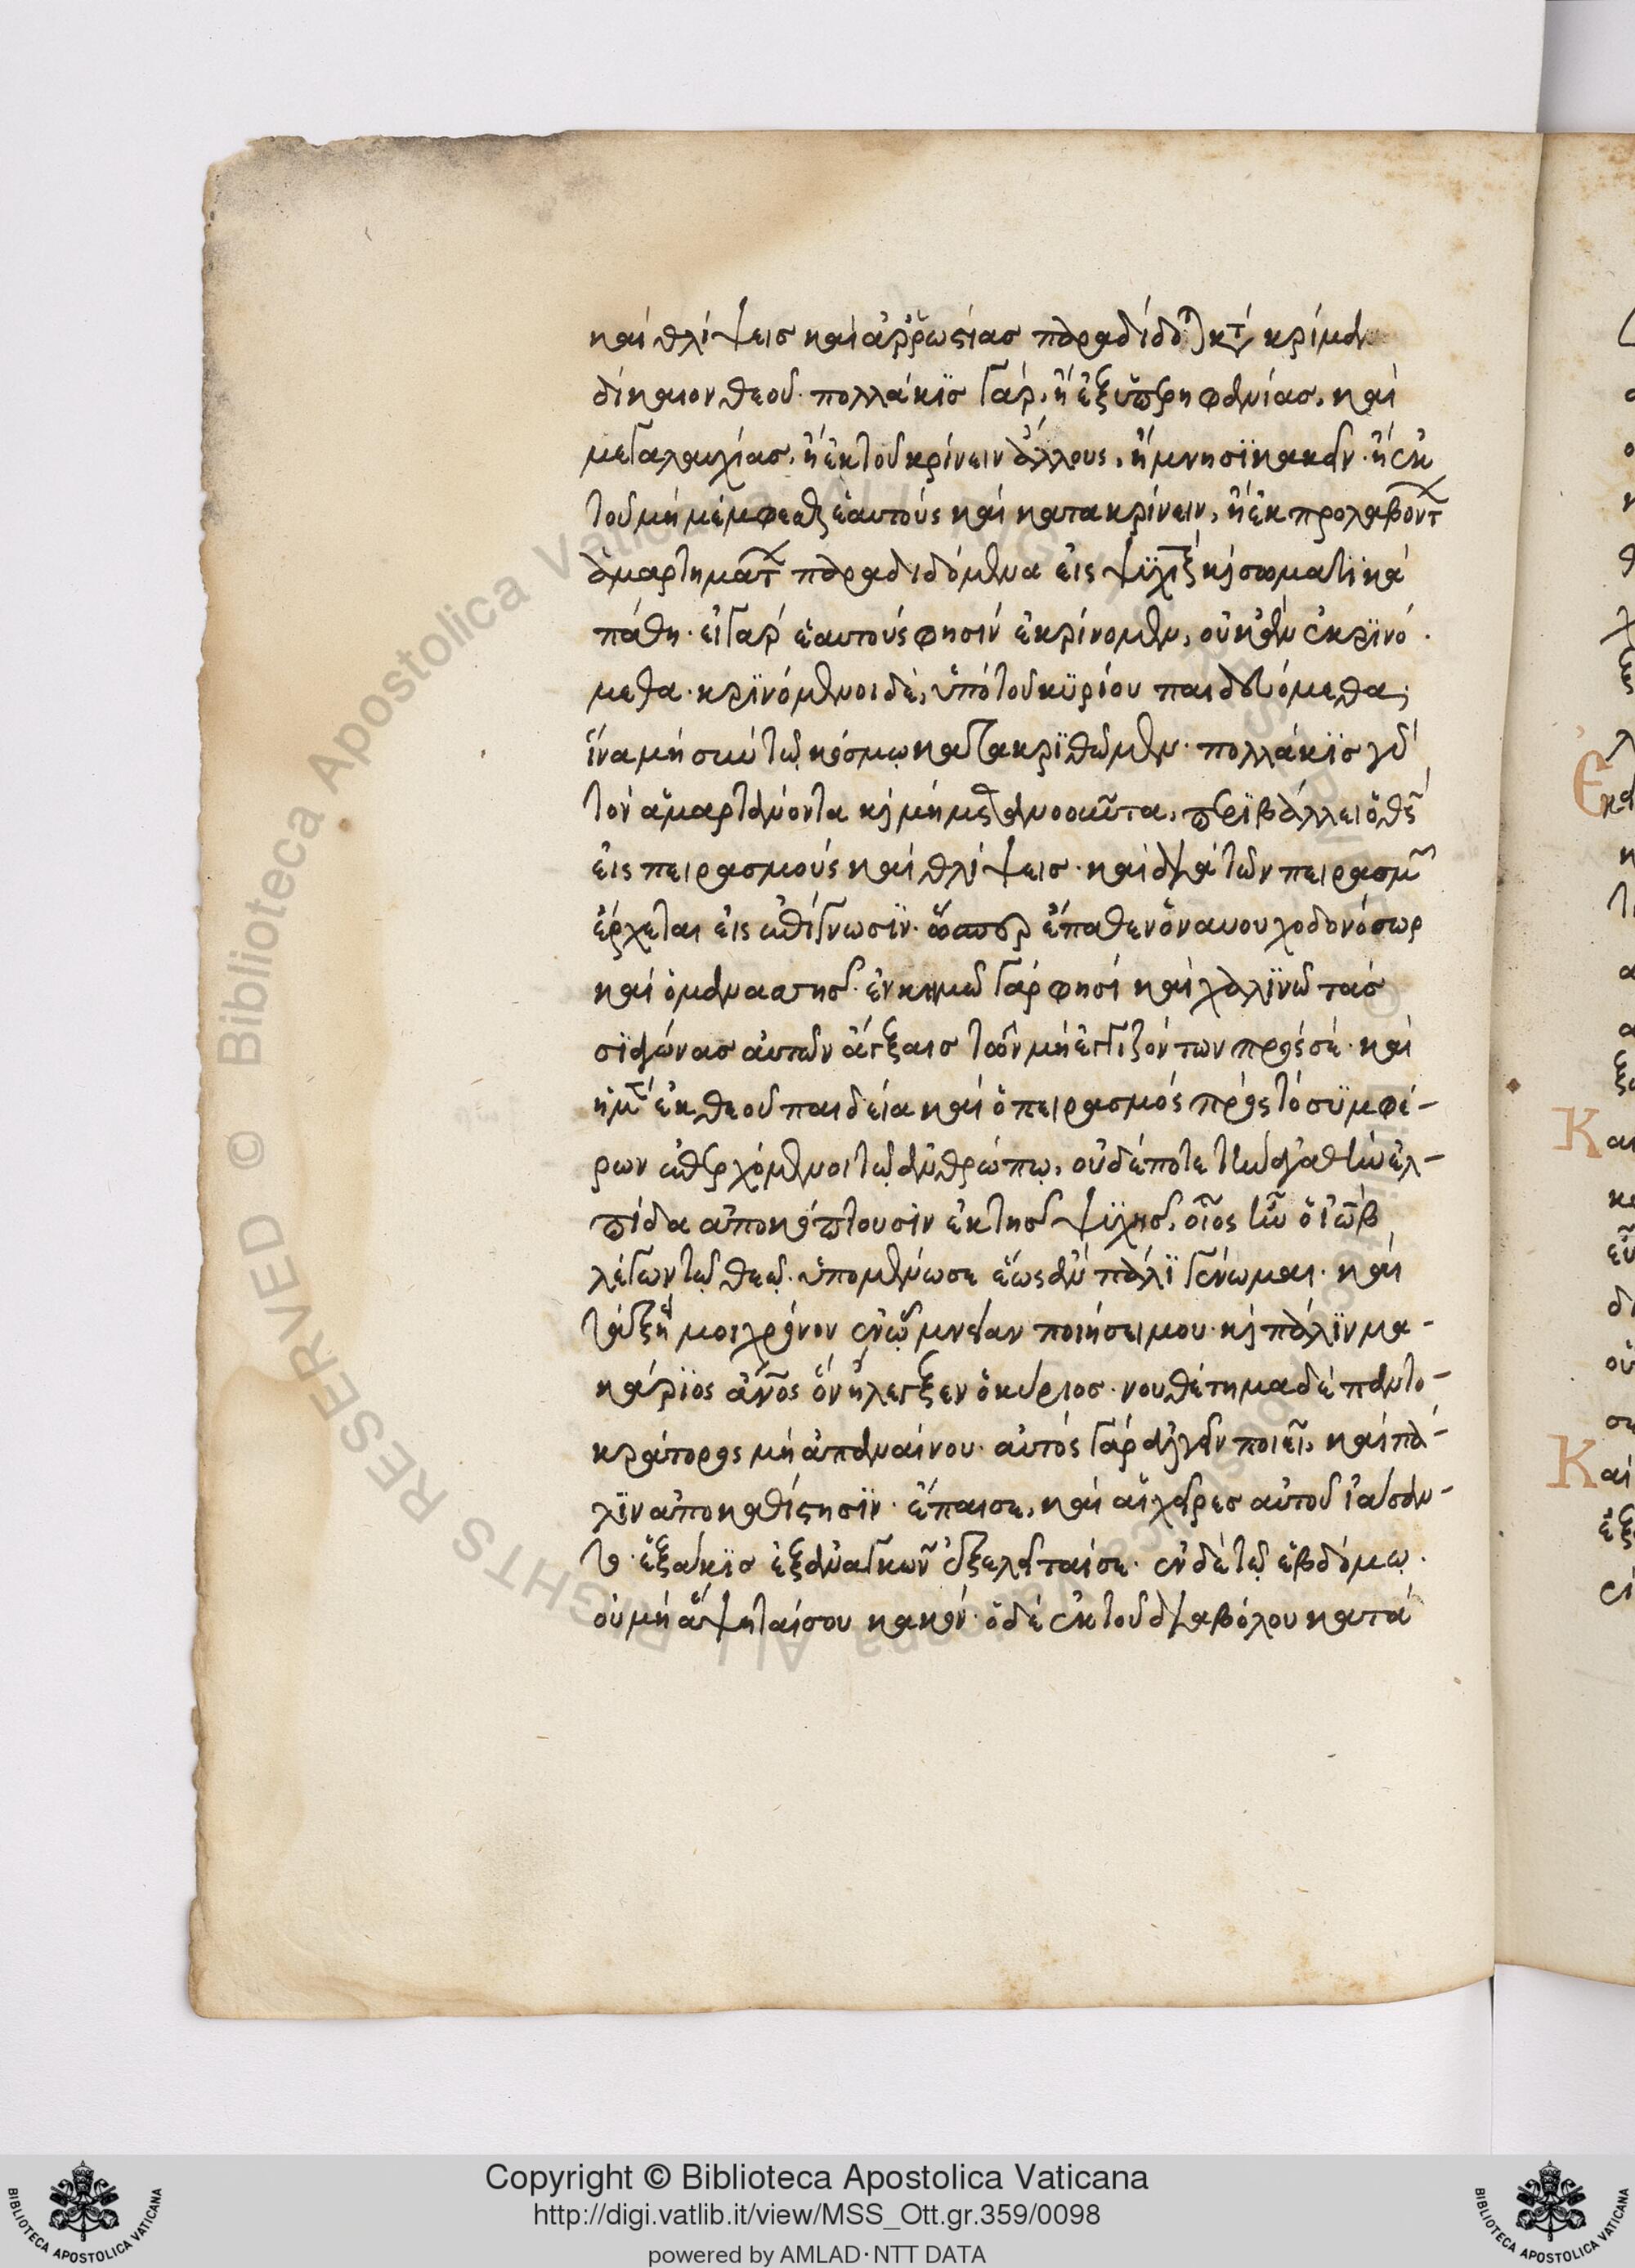 καὶ θλίψεις καὶ ἀρρωστίας παραδίδοται κατὰ κρίμα
δίκαιον θεοῦ· πολλάκις γὰρ, ἢ ἐξ ὑπερηφανίας, καὶ
μεγαλαυχίας, ἢ ἐκ τοῦ κρίνειν ἄλλους, ἢ μνησικακεῖν· ἢ ἐκ
τοῦ μὴ μέμφεσθαι ἑαυτοὺς καὶ κατακρίνειν, ἢ ἐκ προλαβόντων
ἁμαρτημάτων παραδιδόμενα εἰς ψυχικὰ καὶ σωματικὰ
πάθη· εἰ γὰρ ἑαυτοὺς φησὶν ἐκρίνομεν, οὐκ ἂν ἐκρινό
μεθα· κρινόμενοι δὲ, ὑπὸ τοῦ κυρίου παιδευόμεθα,
ἵνα μὴ σὺν τῷ κόσμῳ κατακριθῶμεν· πολλάκις γὰρ
τὸν ἁμαρτάνοντα καὶ μὴ μετανοοῦντα, περιβάλλει ὁ θεὸς
εἰς πειρασμοὺς καὶ θλίψεις· καὶ διὰ τῶν πειρασμῶν
ἔρχεται εἰς ἐπίγνωσιν· ὥσπερ ἔπαθεν ὁ ναβουχοδονόσωρ
καὶ ὁ μανασσῆς· ἐν κημῷ γὰρ φησὶ καὶ χαλινῷ τὰς
σιαγόνας αὐτῶν ἄγξαις τῶν μὴ ἐγγιζόντων πρὸς σέ· καὶ
ἡ μὲν ἐκ θεοῦ παιδεία καὶ ὁ πειρασμὸς πρὸς τὸ συμφέ-
ρων ἐπερχόμενοι τῷ ἀνθρώπῳ, οὐδέποτε τὴν ἀγαθὴν ἐλ-
πίδα ἀποκόπτουσιν ἐκ τῆς ψυχῆς, οἷος ἦν ὁ ἰὼβ
λέγων τῷ θεῷ· ὑπομένω σε ἕως ἂν πάλι γένωμαι· καὶ
τάξῃ μοι χρόνον ἐν ᾧ μνείαν ποιήσει μου· καὶ πάλιν μα-
κάριος ἄνος ὃν ἤλεγξεν ὁ κύριος· νουθέτημα δὲ παντο-
κράτορος μὴ ἀπαναίνου· αὐτὸς γὰρ ἀλγεῖν ποιεῖ, καὶ πά-
λιν ἀποκαθίστησιν· ἔπαισε, καὶ αἱ χεῖρες αὐτοῦ ἰάσαν-
το· ἑξάκις ἐξ ἀναγκῶν ἐξελεῖταί σε· ἐν δὲ τῷ ἑβδόμῳ·
οὐ μὴ ἅψηταί σου κακόν· ὁ δὲ ἐκ τοῦ διαβόλου κατὰ
Copyright © Biblioteca Apostolica Vaticana
http://digi.vatlib.it/view/MSS_Ott.gr.359/0098
powered by AMLAD·NTT DATA